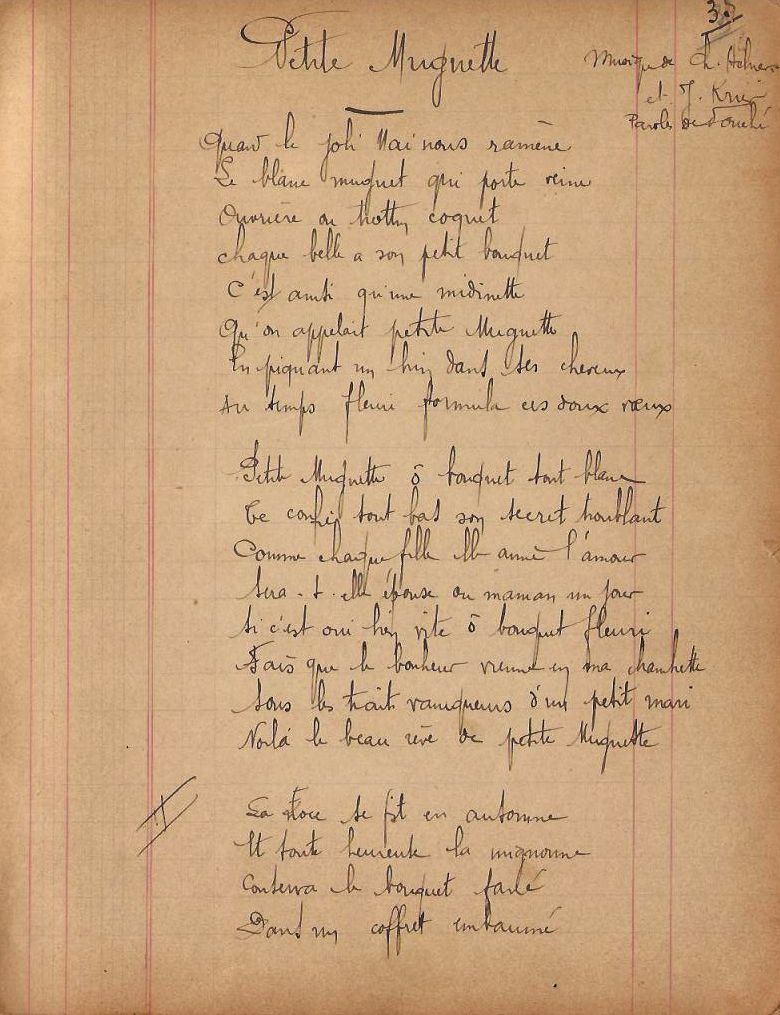 35
Petite Muguette
Musique de Ch.
et J. Krier
Paroles de Fouché
Quand le joli Mai nous ramène
Le blanc muguet qui porte veine
Ouvrière ou trottin coquet
chaque belle a son petit bouquet
C'est ainsi qu'une midinette
Qu'on appelait petite Muguette
En piquant un brin dans ses cheveux
Au temps fleuri formula ces doux vœux
Petite Muguette ô bouquet tout blanc
Te confie tout bas son secret troublant
Comme chaque fille elle aime l'amour
Sera-t-elle épouse ou maman un jour
Si c'est oui bien vite ô bouquet fleuri
Fais que le bonheur vienne en ma chambrette
Sous les traits vainqueurs d'un petit mari
Voilà le beau rêve de petite Muguette
II
La Noce se fit en automne
Et toute heureuse la mignonne
Conserva le bouquet fané
Dans un coffret embaumé